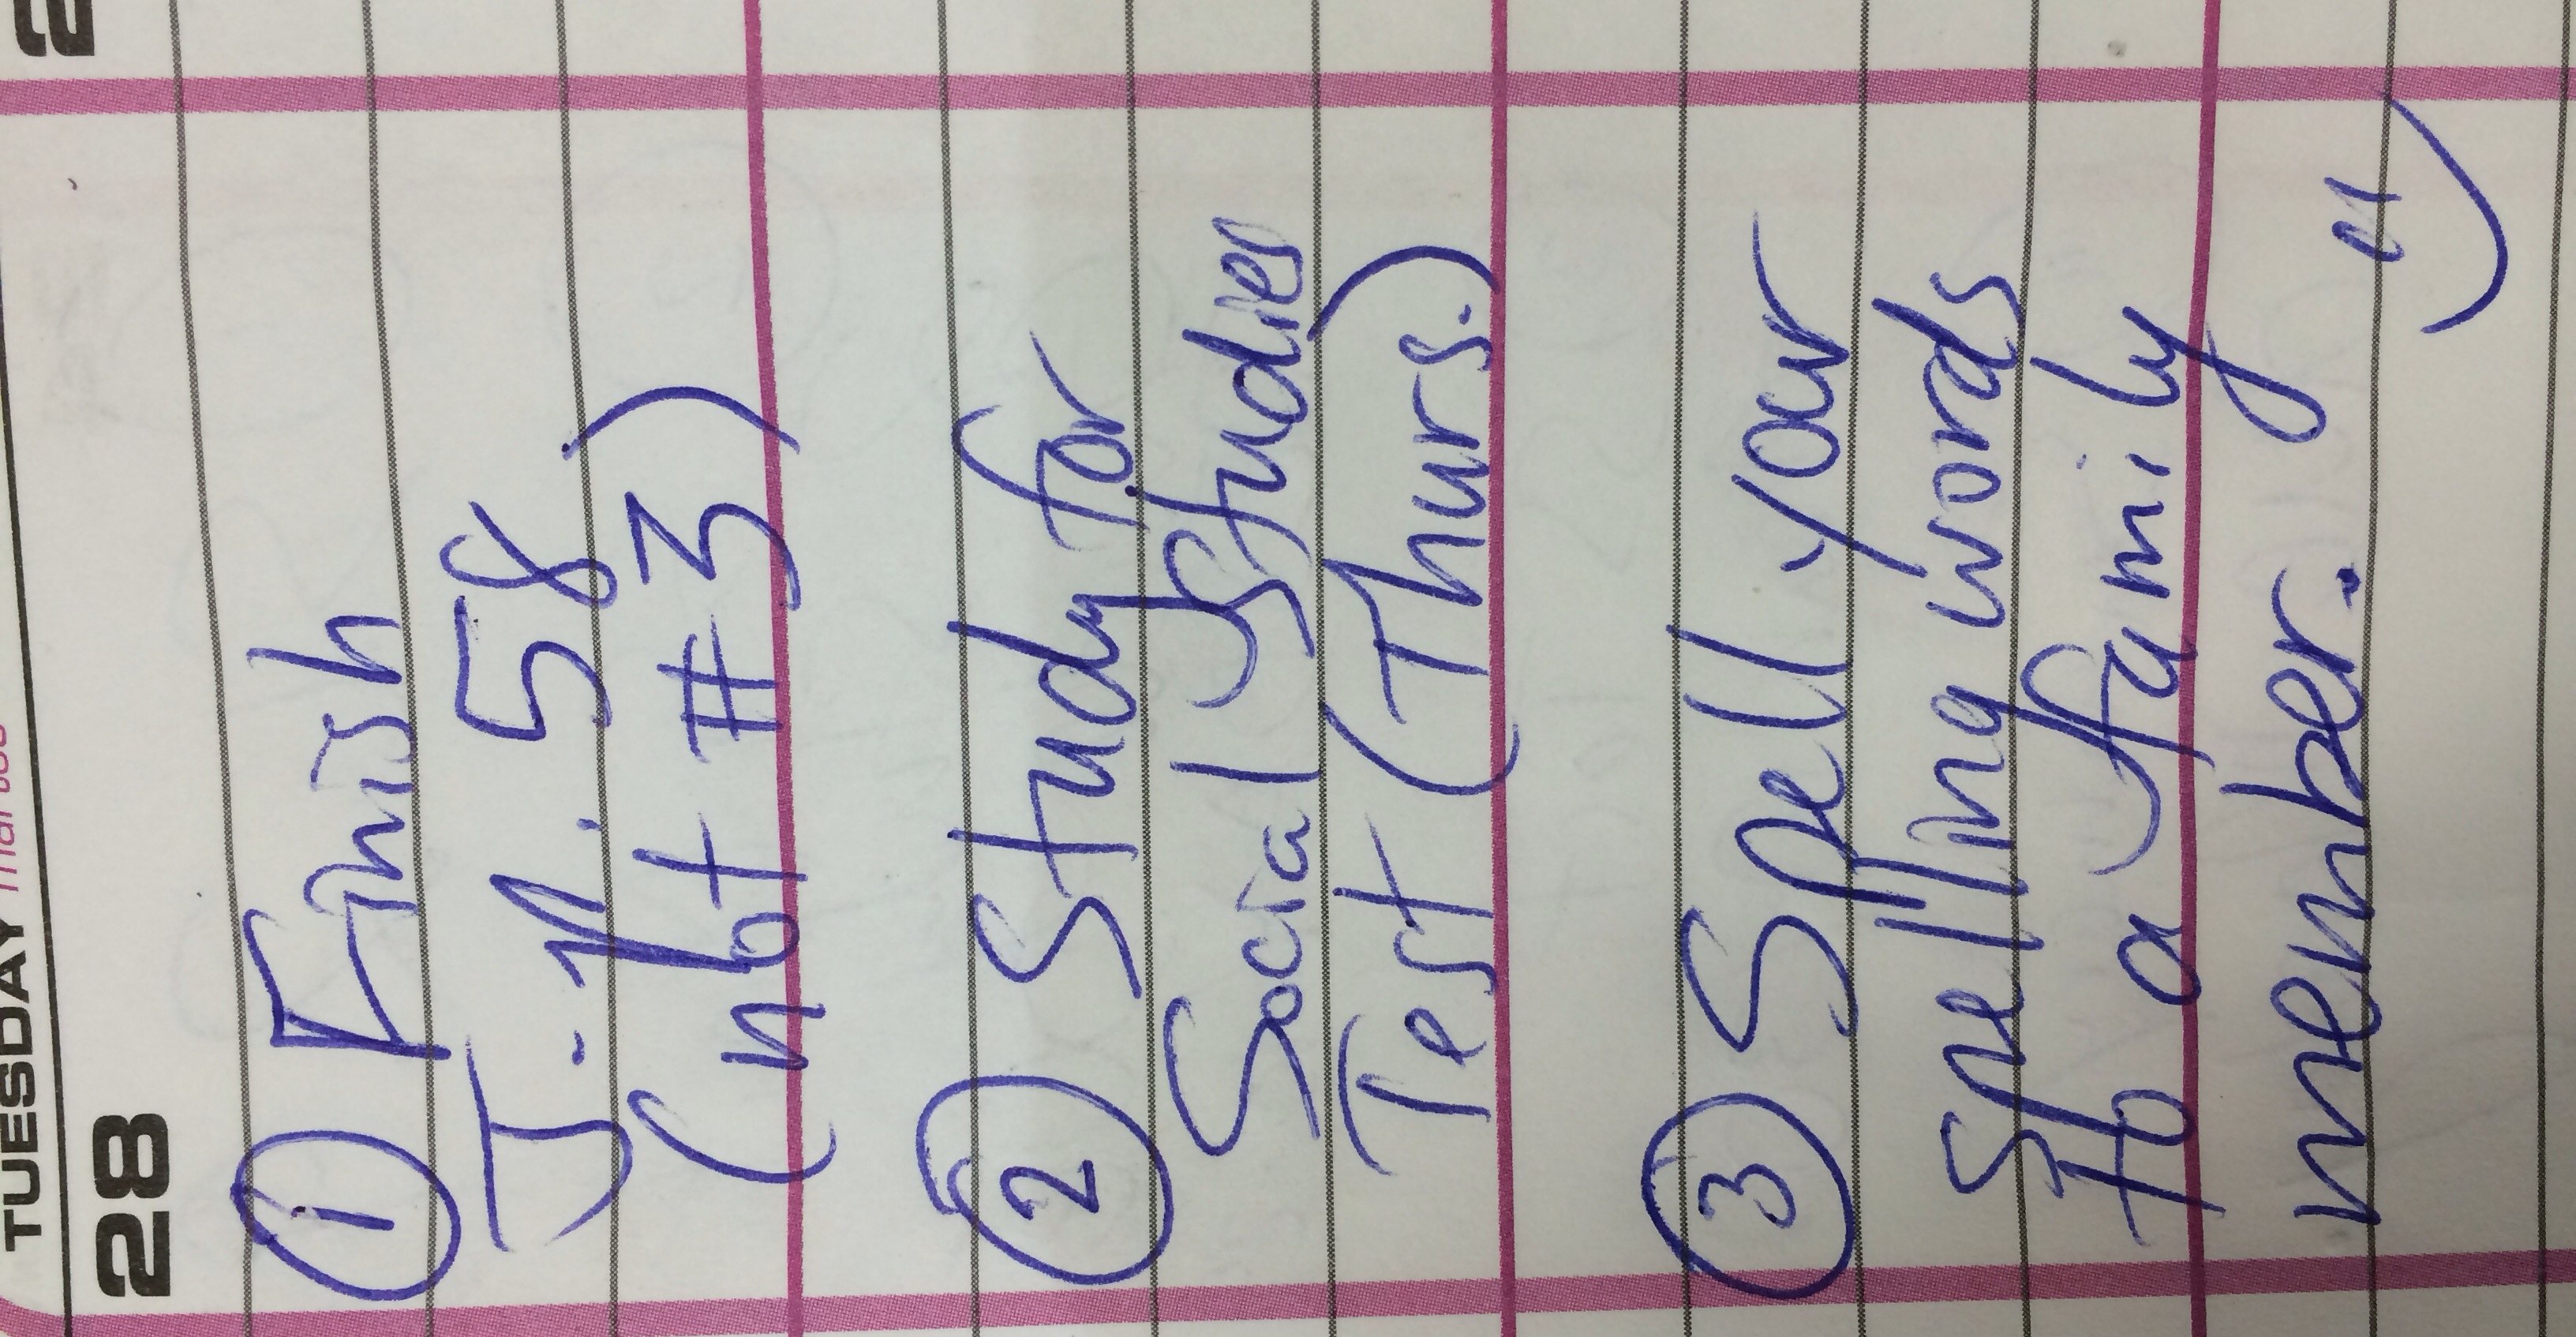 TUESDAY mardi
28
① Finish
J. p. 58
(not #3)
② Study for
Social Studies
Test (Thurs.)
③ Spell your
spelling words
to a family
member.